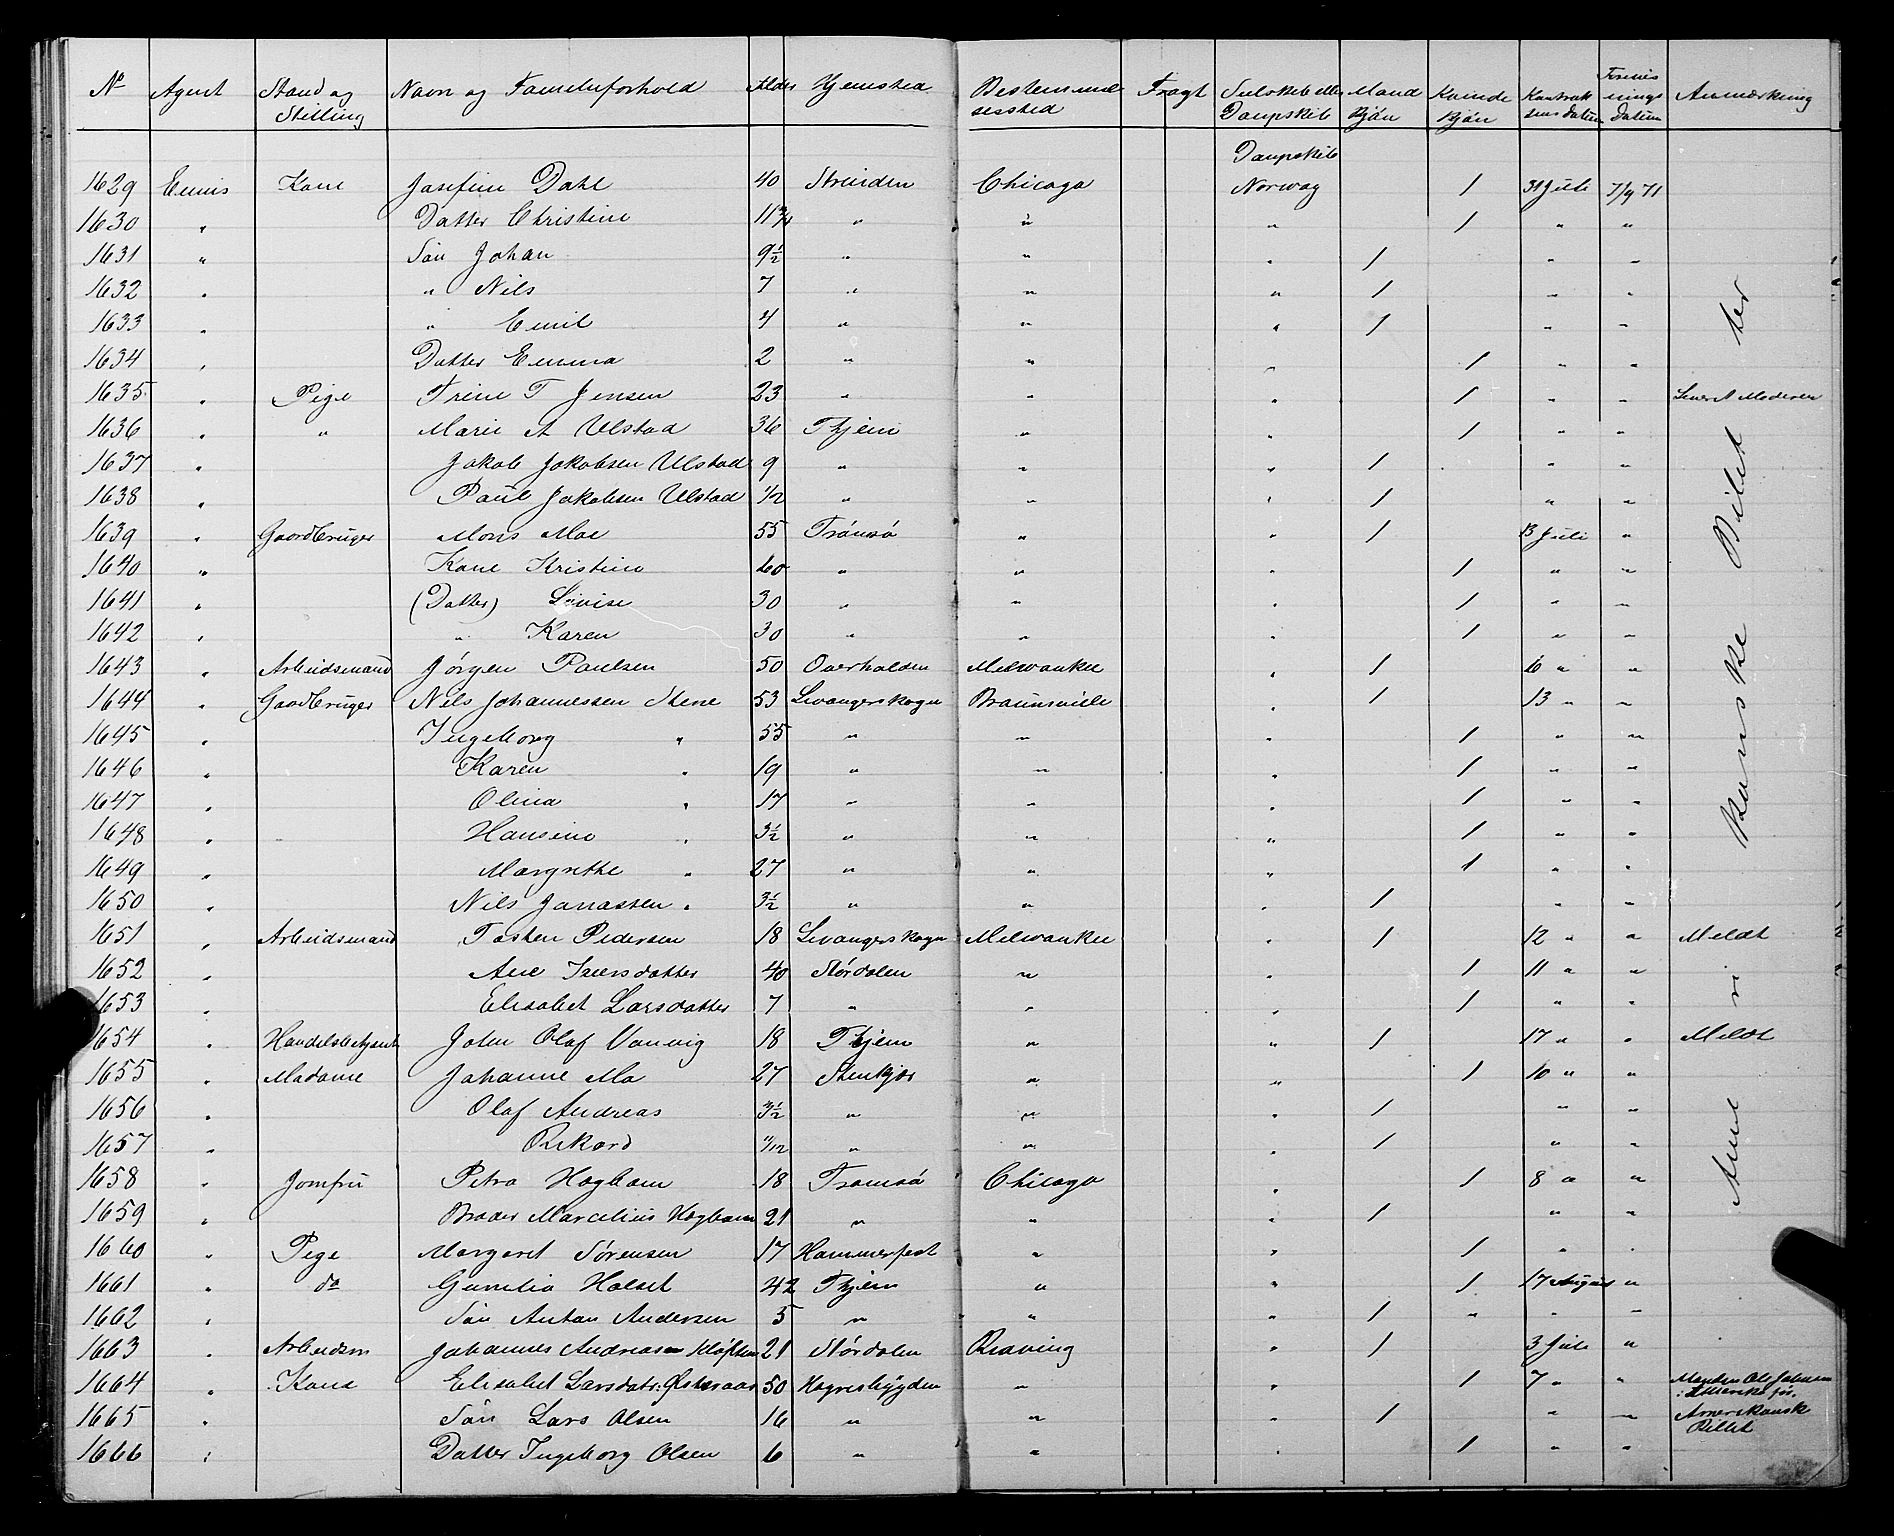 No Agent Stand og Stilling Navn og Familieforhold Alder Hjemsted Bestemmelsessted Fragt Seilskib eller Dampskib Mand Kjön Kvinde Kjön Kontraktens Datum Datum Anmærkning
Dampskib
1629 Kone Josefine Dahl 40 Strinden Chicago Norway 1 31 Juli 7/9 71
1630 " Datter Christine 11 3/4 " " " 1 " "
1631 " Sön Johan 9 1/2 " " " 1 " "
1632 " " Nils 7 " " " 1 " "
1633 " " Emil 4 " " " 1 " "
1634 " Datter Emma 2 " " " 1 " "
1635 " Pige Trine T Jensen 23 " " " 1 " "
1636 " " Marie A Ulstad 36 Thjem " " 1 " "
1637 " Jakob Jakobsen Ulstad 9 " " " 1 " "
1638 " Paul Jakobsen Ulstad 1/2 " " " 1 " "
1639 " Gaardbruger Mons Moe 55 Tromsö " " 1 13 Juli "
1640 " Kone Kristine 60 " " " 1 " "
1641 " (Datter) Lovise 30 " " " 1 " "
1642 " " Karen 30 " " " 1 " "
1643 " Arbeidsmand Jörgen Paulsen 50 Overhalden Milwaukee " 1 16 " "
1644 " Gaardbruger Nils Johannessen Stene 53 Levangerskogn Braunsville " 1 13 " "
1645 " Ingeborg " 55 " " " 1 " "
1646 " Karen " 19 " " " 1 " "
1647 " Olina " 17 " " " 1 " "
1648 " Hansine " 3 1/2 " " " 1 " "
1649 " Margrethe " 27 " " " 1 " "
1650 " Nils Jonassen " 3 1/2 " " " 1 " "
1651 " Arbeidsmand Tosten Pedersen 18 Levangerskogn Milwaukee " 1 12 " " Meldt
1652 " Ane Iversdatter 40 Stördalen " " 1 11 " "
1653 " Elisabet Larsdatter 7 " " " 1 " "
1654 " Handelsbetjent John Olaf Vanvig 18 Thjem " " 1 17 " " Meldt
1655 " Madame Johanne Mo 27 Stenkjær " " 1 10 " "
1656 " Olaf Andreas 3 1/2 " " " 1 " "
1657 " Rikard 11/12 " " " 1 " "
1658 " Jomfru Petra Hogbom 18 Tromsö Chicago " 1 8 " "
1659 " Broder Marcelius Hogbom 21 " " " 1 " "
1660 " Pige Margaret Sörensen 17 Hammerfest " " 1 " "
1661 " do Gunelia Holset 42 Thjem " " 1 17 August "
1662 " Sön Anton Andersen 5 " " " 1 " "
1663 " Arbeidsm Johannes Andreasen Klöften 21 Stördalen " 1 3 Juli "
1664 " Kone Elisabet Larsdatr: Østeraas 50 " " 1 7 " " Manden Ole Johnsen
1665 " Sön Lars Olsen 16 " " " 1 " " Amerikansk Billet
1666 " Datter Ingeborg Olsen 6 " " " 1 " "
Amerikanske Billetter